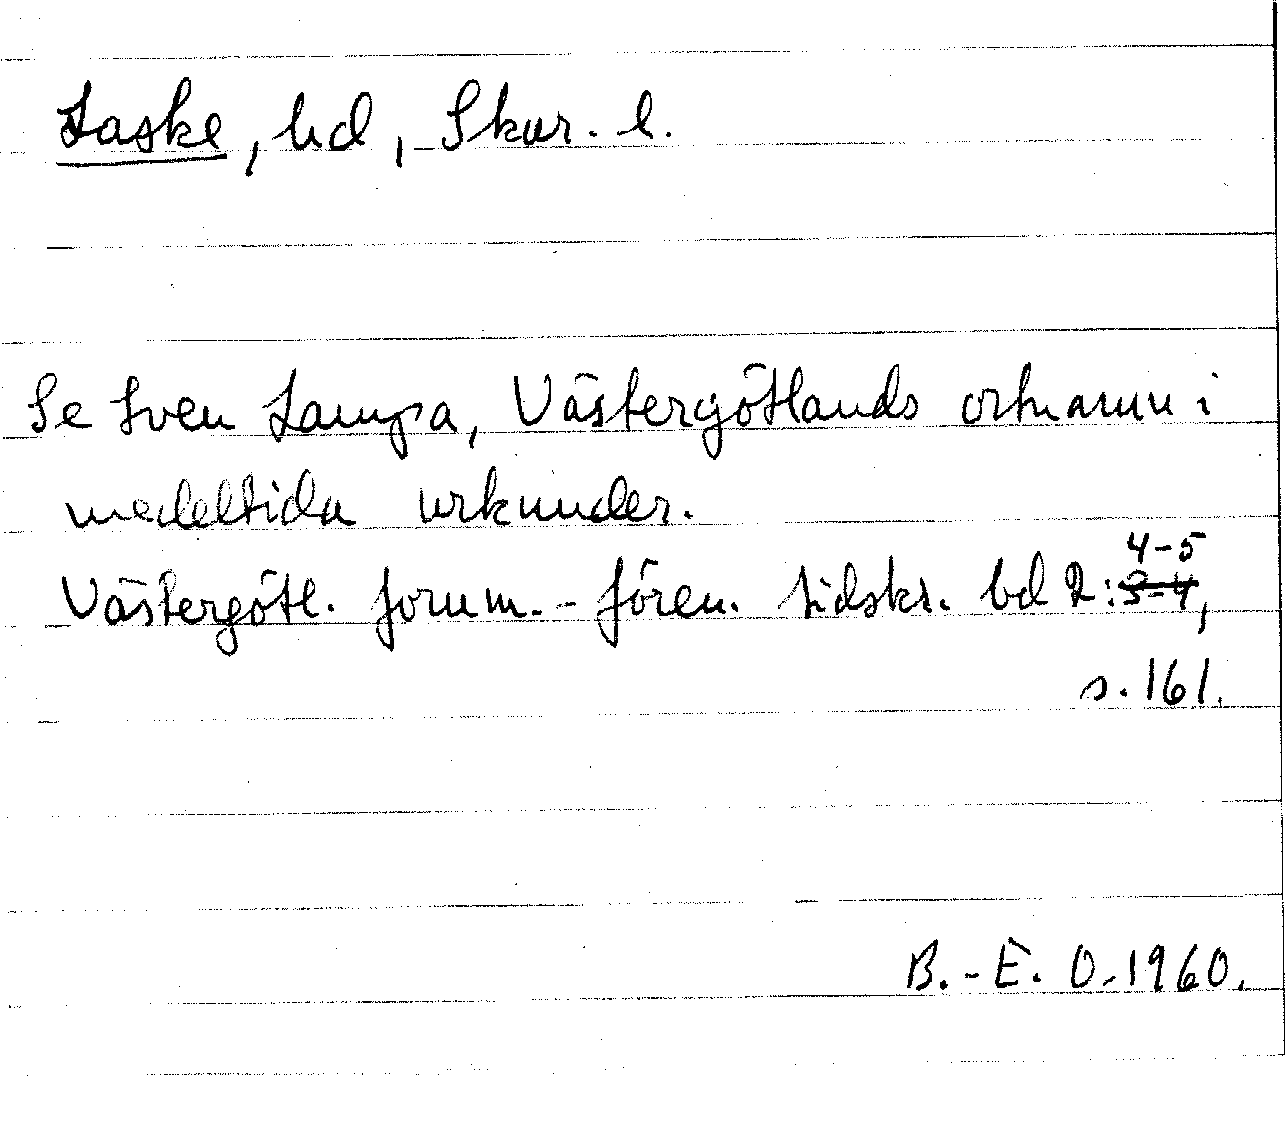 Laske, hd, Skar. l.
Se Sven Lampa, Västergötlands ortnamn i
medeltida urkunder.
Västergötl. fornm.-fören. tidskr. bd 2: 4-5
3-4,
s. 161.
B.-E. O. 1960.